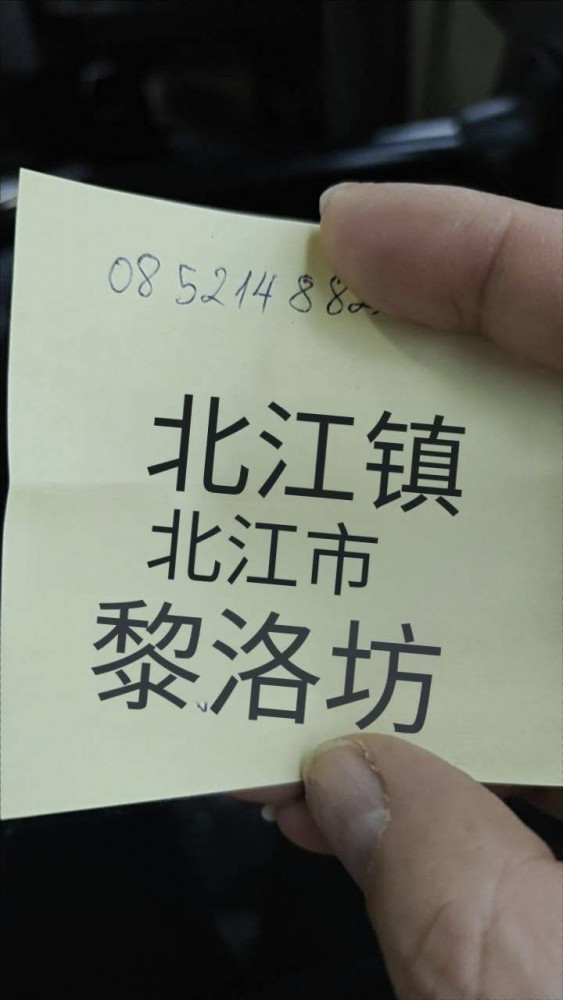 08 5214 882
北江镇
北江市
黎洛坊